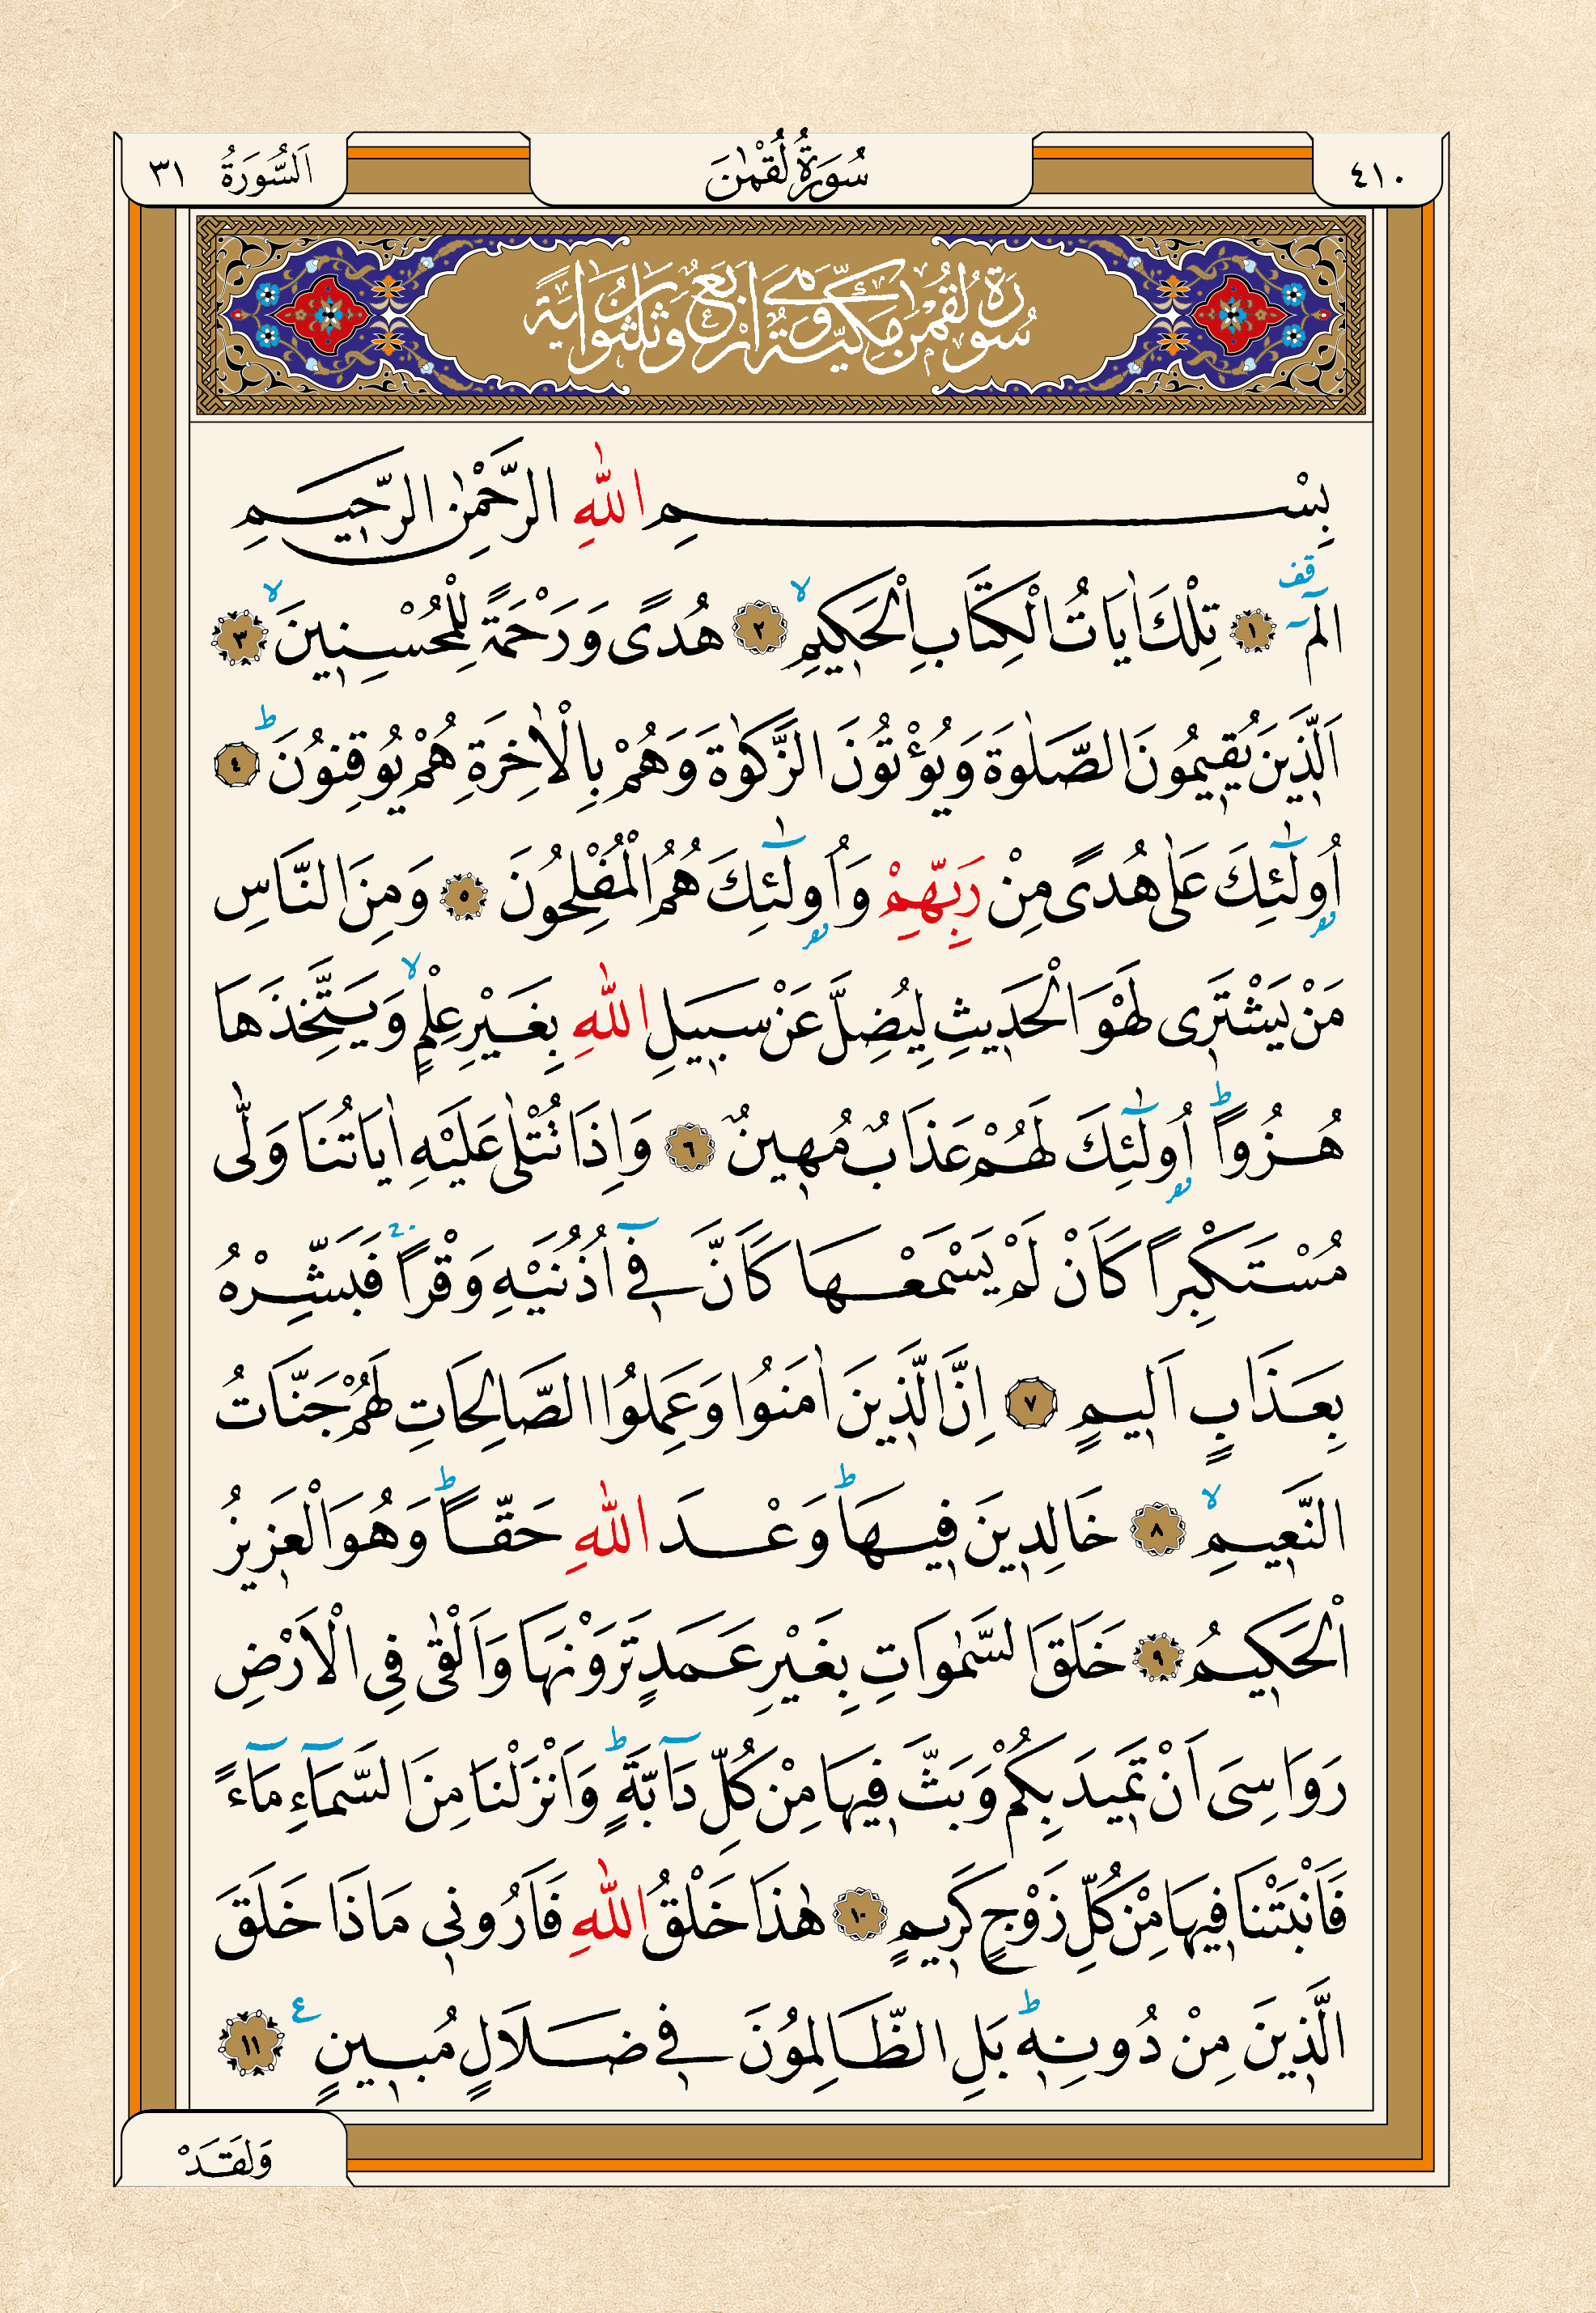 ٤١٠
سُورَةُ لُقْمٰنَ
اَلسُّورَةُ ٣١
سُورَةُ لُقْمٰنَ مَكِّيَّةٌ وَهِيَ اَرْبَعٌ وَثَلٰثُونَ اٰيَةً
بِسْمِ اللّٰهِ الرَّحْمٰنِ الرَّحٖيمِ
الٓمٓ قف ١ تِلْكَ اٰيَاتُ الْكِتَابِ الْحَكٖيمِ لا ٢ هُدًى وَرَحْمَةً لِلْمُحْسِنٖينَ لا ٣
اَلَّذٖينَ يُقٖيمُونَ الصَّلٰوةَ وَيُؤْتُونَ الزَّكٰوةَ وَهُمْ بِالْاٰخِرَةِ هُمْ يُوقِنُونَ ط ٤
اُولٰٓئِكَ عَلٰى هُدًى مِنْ رَبِّهِمْ وَاُولٰٓئِكَ هُمُ الْمُفْلِحُونَ ٥ وَمِنَ النَّاسِ
مَنْ يَشْتَرٖى لَهْوَ الْحَدٖيثِ لِيُضِلَّ عَنْ سَبٖيلِ اللّٰهِ بِغَيْرِ عِلْمٍ لا وَيَتَّخِذَهَا
هُزُواً ط اُولٰٓئِكَ لَهُمْ عَذَابٌ مُهٖينٌ ٦ وَاِذَا تُتْلٰى عَلَيْهِ اٰيَاتُنَا وَلّٰى
مُسْتَكْبِراً كَاَنْ لَمْ يَسْمَعْهَا كَاَنَّ فٖٓى اُذُنَيْهِ وَقْراً ج فَبَشِّرْهُ
بِعَذَابٍ اَلٖيمٍ ٧ اِنَّ الَّذٖينَ اٰمَنُوا وَعَمِلُوا الصَّالِحَاتِ لَهُمْ جَنَّاتُ
النَّعٖيمِ لا ٨ خَالِدٖينَ فٖيهَا ط وَعْدَ اللّٰهِ حَقّاً ط وَهُوَ الْعَزٖيزُ
الْحَكٖيمُ ٩ خَلَقَ السَّمٰوَاتِ بِغَيْرِ عَمَدٍ تَرَوْنَهَا وَاَلْقٰى فِى الْاَرْضِ
رَوَاسِىَ اَنْ تَمٖيدَ بِكُمْ وَبَثَّ فٖيهَا مِنْ كُلِّ دَٓابَّةٍ ط وَاَنْزَلْنَا مِنَ السَّمَٓاءِ مَٓاءً
فَاَنْبَتْنَا فٖيهَا مِنْ كُلِّ زَوْجٍ كَرٖيمٍ ١٠ هٰذَا خَلْقُ اللّٰهِ فَاَرُونٖى مَاذَا خَلَقَ
الَّذٖينَ مِنْ دُونِهٖ ط بَلِ الظَّالِمُونَ فٖى ضَلَالٍ مُبٖينٍ ع ١١
وَلَقَدْ